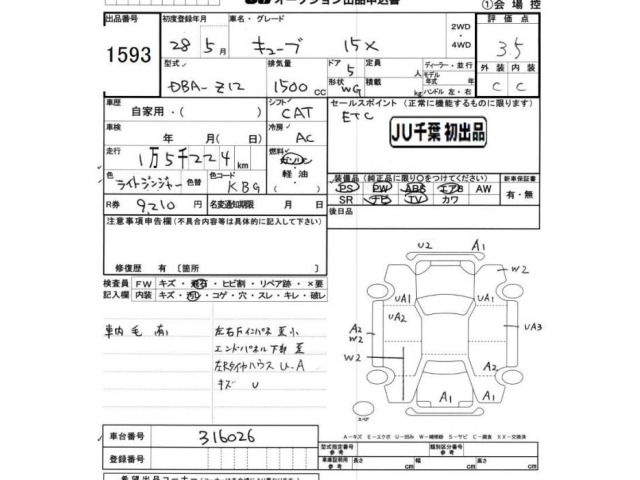 オークション出品申込書
①会場控
出品番号 1593
初度登録年月 28年5月
車名・グレード キューブ 15X
2WD
4WD
評価点 35
型式 DBA-Z12
排気量 1500 CC
ドア 5
形状 WG
定員 人
積載 kg
ディーラー・並行
モデル年式 年
ハンドル 左・右
外装 C
内装 C
車歴 自家用・( )
シフト CAT
セールスポイント(正常に機能するものに限ります)
ETC
JU千葉 初出品
車検 年 月( )
冷房 AC
走行 1万5千224km
燃料 ガソリン
軽油
色 ライトジンジャー
色替
色コード KBG
装備品(純正品に限り○をつけてください)
PS PW ABS エアB AW
SR ナビ TV カワ
新車保証書
有・無
R券 9,210円
名変通知期限 月 日
後日品
注意事項申告欄(不具合内容等は具体的に記入して下さい)
修復歴 有〔箇所 〕
検査員記入欄
FW キズ・飛石・ヒビ割・リペア跡・×要
内装 キズ・汚れ・コゲ・穴・スレ・キレ・破レ
車内毛有り
左右Fインパネ歪小
エンドパネル下部歪
左Rタイヤハウス U-A
キズ U
U2 A1
W2
UA1 UA1
UA2
A2
W2
UA3
W2
A1
A1 A1
スペア
A-キズ E-エクボ U-凹み W-補修跡 S-サビ C-腐食 XX-交換済
車台番号 316026
登録番号
型式指定番号
参考
類別区分番号
参考
車検証明
参考
長さ cm
幅 cm
高さ cm
希望出品コーナー